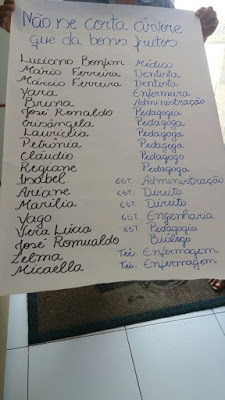 Não se corta árvore
que dá bons frutos
Luciano Bonfim Médico
Mário Ferreira Dentista
Márcio Ferreira Dentista
Yara Enfermeira
Bruna Administração
José Ronaldo Pedagogia
Crisângela Pedagoga
Lauricélia Pedagoga
Petrúnia Pedagoga
Cláudio Pedagogo
Regiane Pedagoga
Isabel EST. Administração
Ariane EST. Direito
Marilia EST. Direito
Yago EST. Engenharia
Vera Lúcia EST. Pedagogia
José Romualdo Biólogo
Zelma Téc. Enfermagem
Micaella Téc. Enfermagem